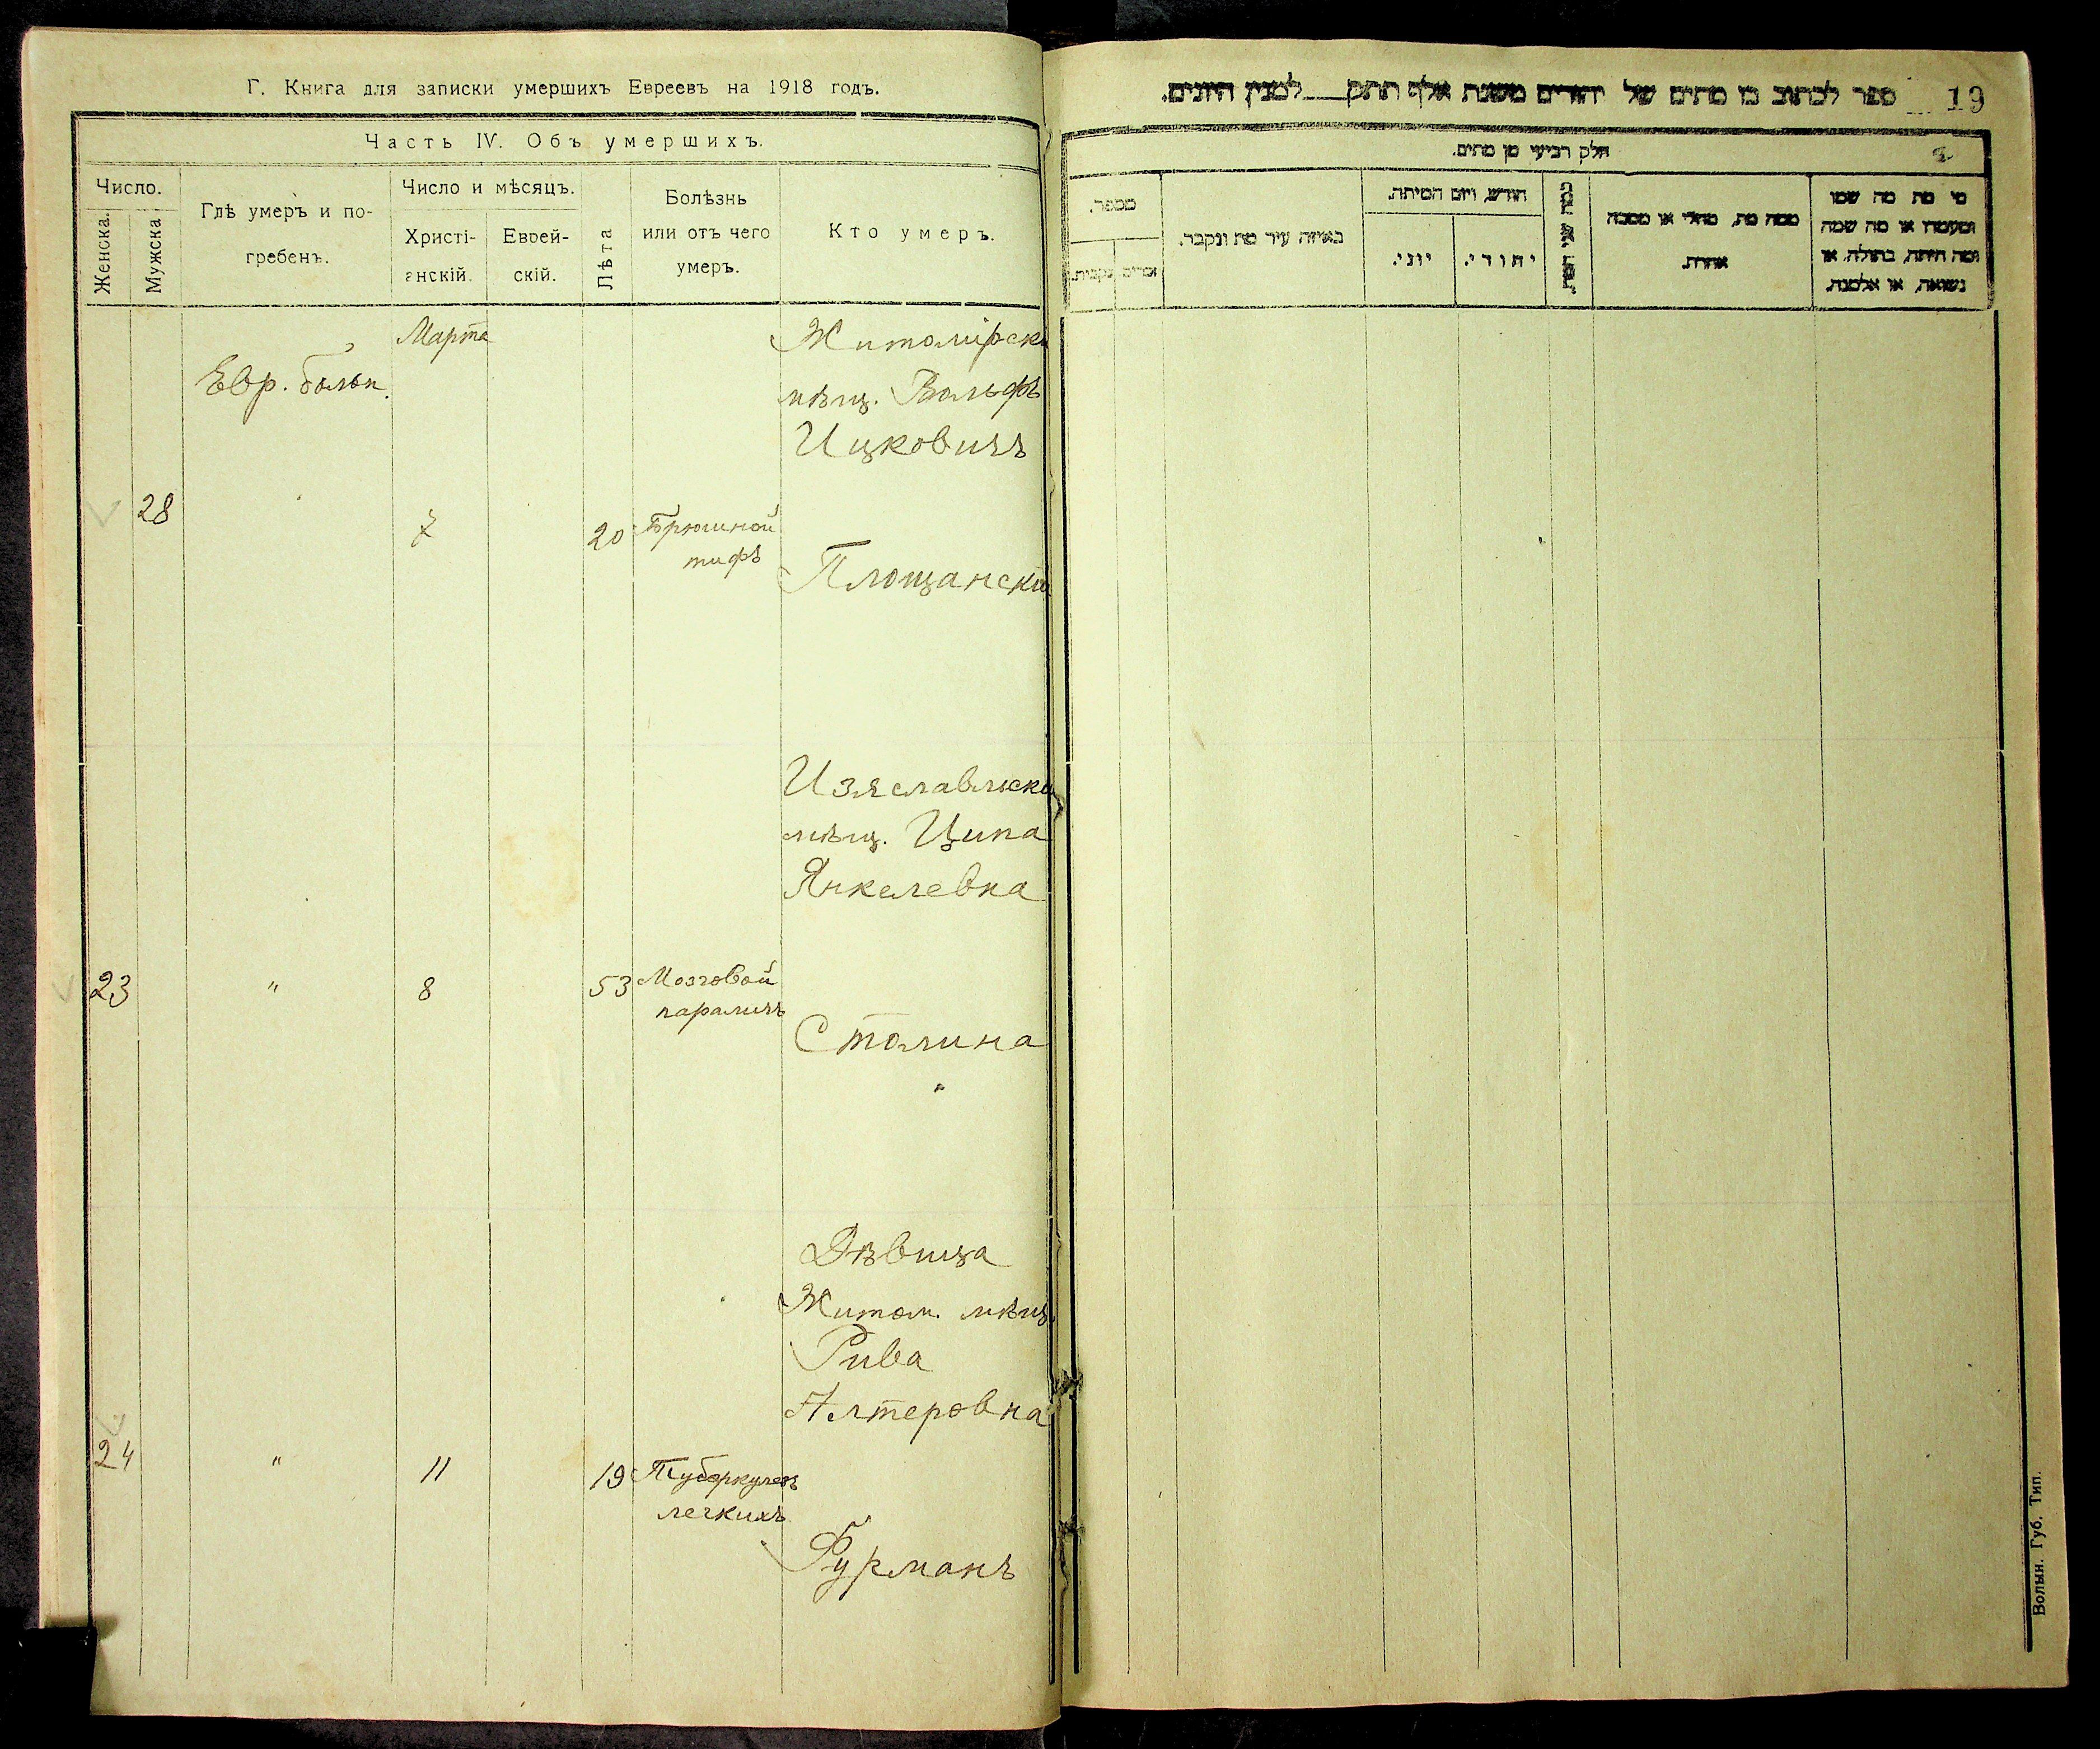 Г. Книга для записки умершихъ Евреевъ на 1918 годъ.
Часть IV. Объ умершихъ.
Число.
Женска.
Мужска
Гдѣ умеръ и по-
гребенъ.
Число и мѣсяцъ.
Христі-
анскій.
Еврей-
скій.
Лѣта
Болѣзнь
или отъ чего
умеръ.
Кто умеръ.
Марта
Евр. больн.
Житомірскій
мѣщ. Вольфъ
Ицковичъ
28
7
20
Брюшной
тифъ
Площанскій
Изяславльская
мѣщ. Ципа
Янкелевна
23
"
8
53
Мозговой
параличъ
Столина
"
Дѣвица
Житом. мѣщ.
Рива
Алтеровна
24
"
11
19
Туберкулезъ
легкихъ
Фурманъ
ספר לכתוב בו מתים של יהודים משנת אלף תתק למנין היונים.
19
חלק רביעי מן מתים.
מספר.
זכרים
נקבות.
באיזה עיר מת ונקבר.
חודש, ויום המיתה.
יוני.
יהודי.
ממה מת, מחלי או מסבה
אחרת.
מי מת מה שמו
ומעמדו או מה שמה
ומה היתה, בתולה, או
נשואה, או אלמנה.
Волын. Губ. Тип.